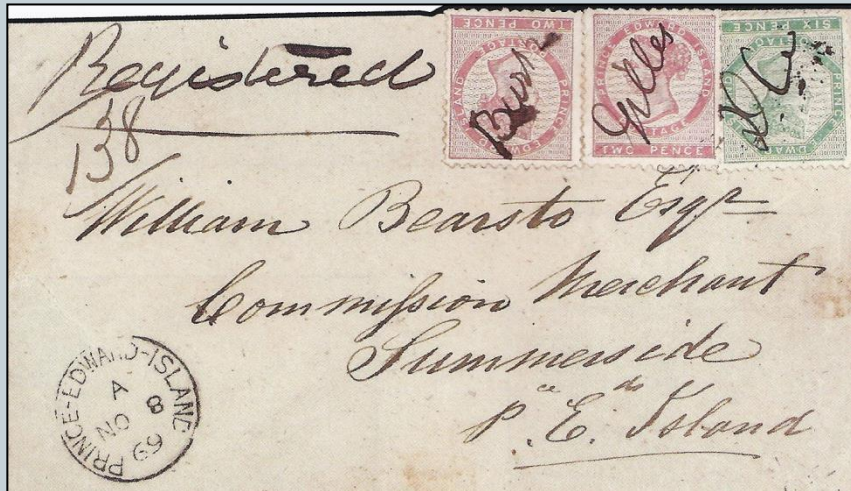 Registered
138
TWO PENCE
PRINCE EDWARD ISLAND
POSTAGE
PRINCE EDWARD ISLAND
POSTAGE
TWO PENCE
SIX PENCE
POSTAGE
William Bearsto Esqr
Commission Merchant
Summerside
P. E. Island
PRINCE-EDWARD-ISLAND
A
NO 8
69